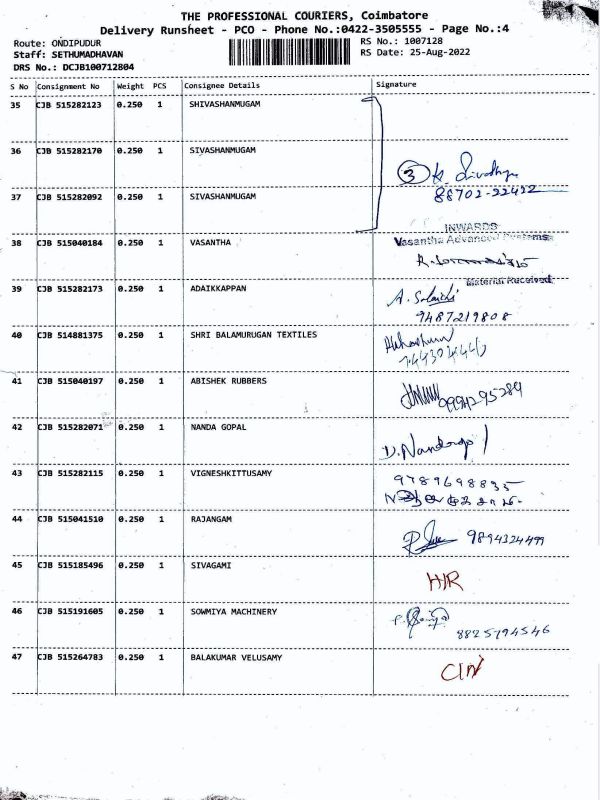 THE PROFESSIONAL COURIERS, Coimbatore
Delivery Runsheet - PCO - Phone No.:0422-3505555 - Page No.:4
Route: ONDIPUDUR
RS No.: 1007128
Staff: SETHUMADHAVAN
RS Date: 25-Aug-2022
DRS No.: DCJB100712804
S No Consignment No Weight PCS Consignee Details Signature
35 CJB 515282123 0.250 1 SHIVASHANMUGAM
36 CJB 515282170 0.250 1 SIVASHANMUGAM
3 K.
88702-22422
37 CJB 515282092 0.250 1 SIVASHANMUGAM
INWARDS
38 CJB 515040184 0.250 1 VASANTHA Vasantha Advanced Systems
Material Received
39 CJB 515282173 0.250 1 ADAIKKAPPAN A.
9487219808
40 CJB 514881375 0.250 1 SHRI BALAMURUGAN TEXTILES
41 CJB 515040197 0.250 1 ABISHEK RUBBERS
42 CJB 515282071 0.250 1 NANDA GOPAL
D. Nandagopal
43 CJB 515282115 0.250 1 VIGNESHKITTUSAMY 9789698835
44 CJB 515041510 0.250 1 RAJANGAM
9894324499
45 CJB 515185496 0.250 1 SIVAGAMI
H/R
46 CJB 515191605 0.250 1 SOWMIYA MACHINERY
8825794546
47 CJB 515264783 0.250 1 BALAKUMAR VELUSAMY